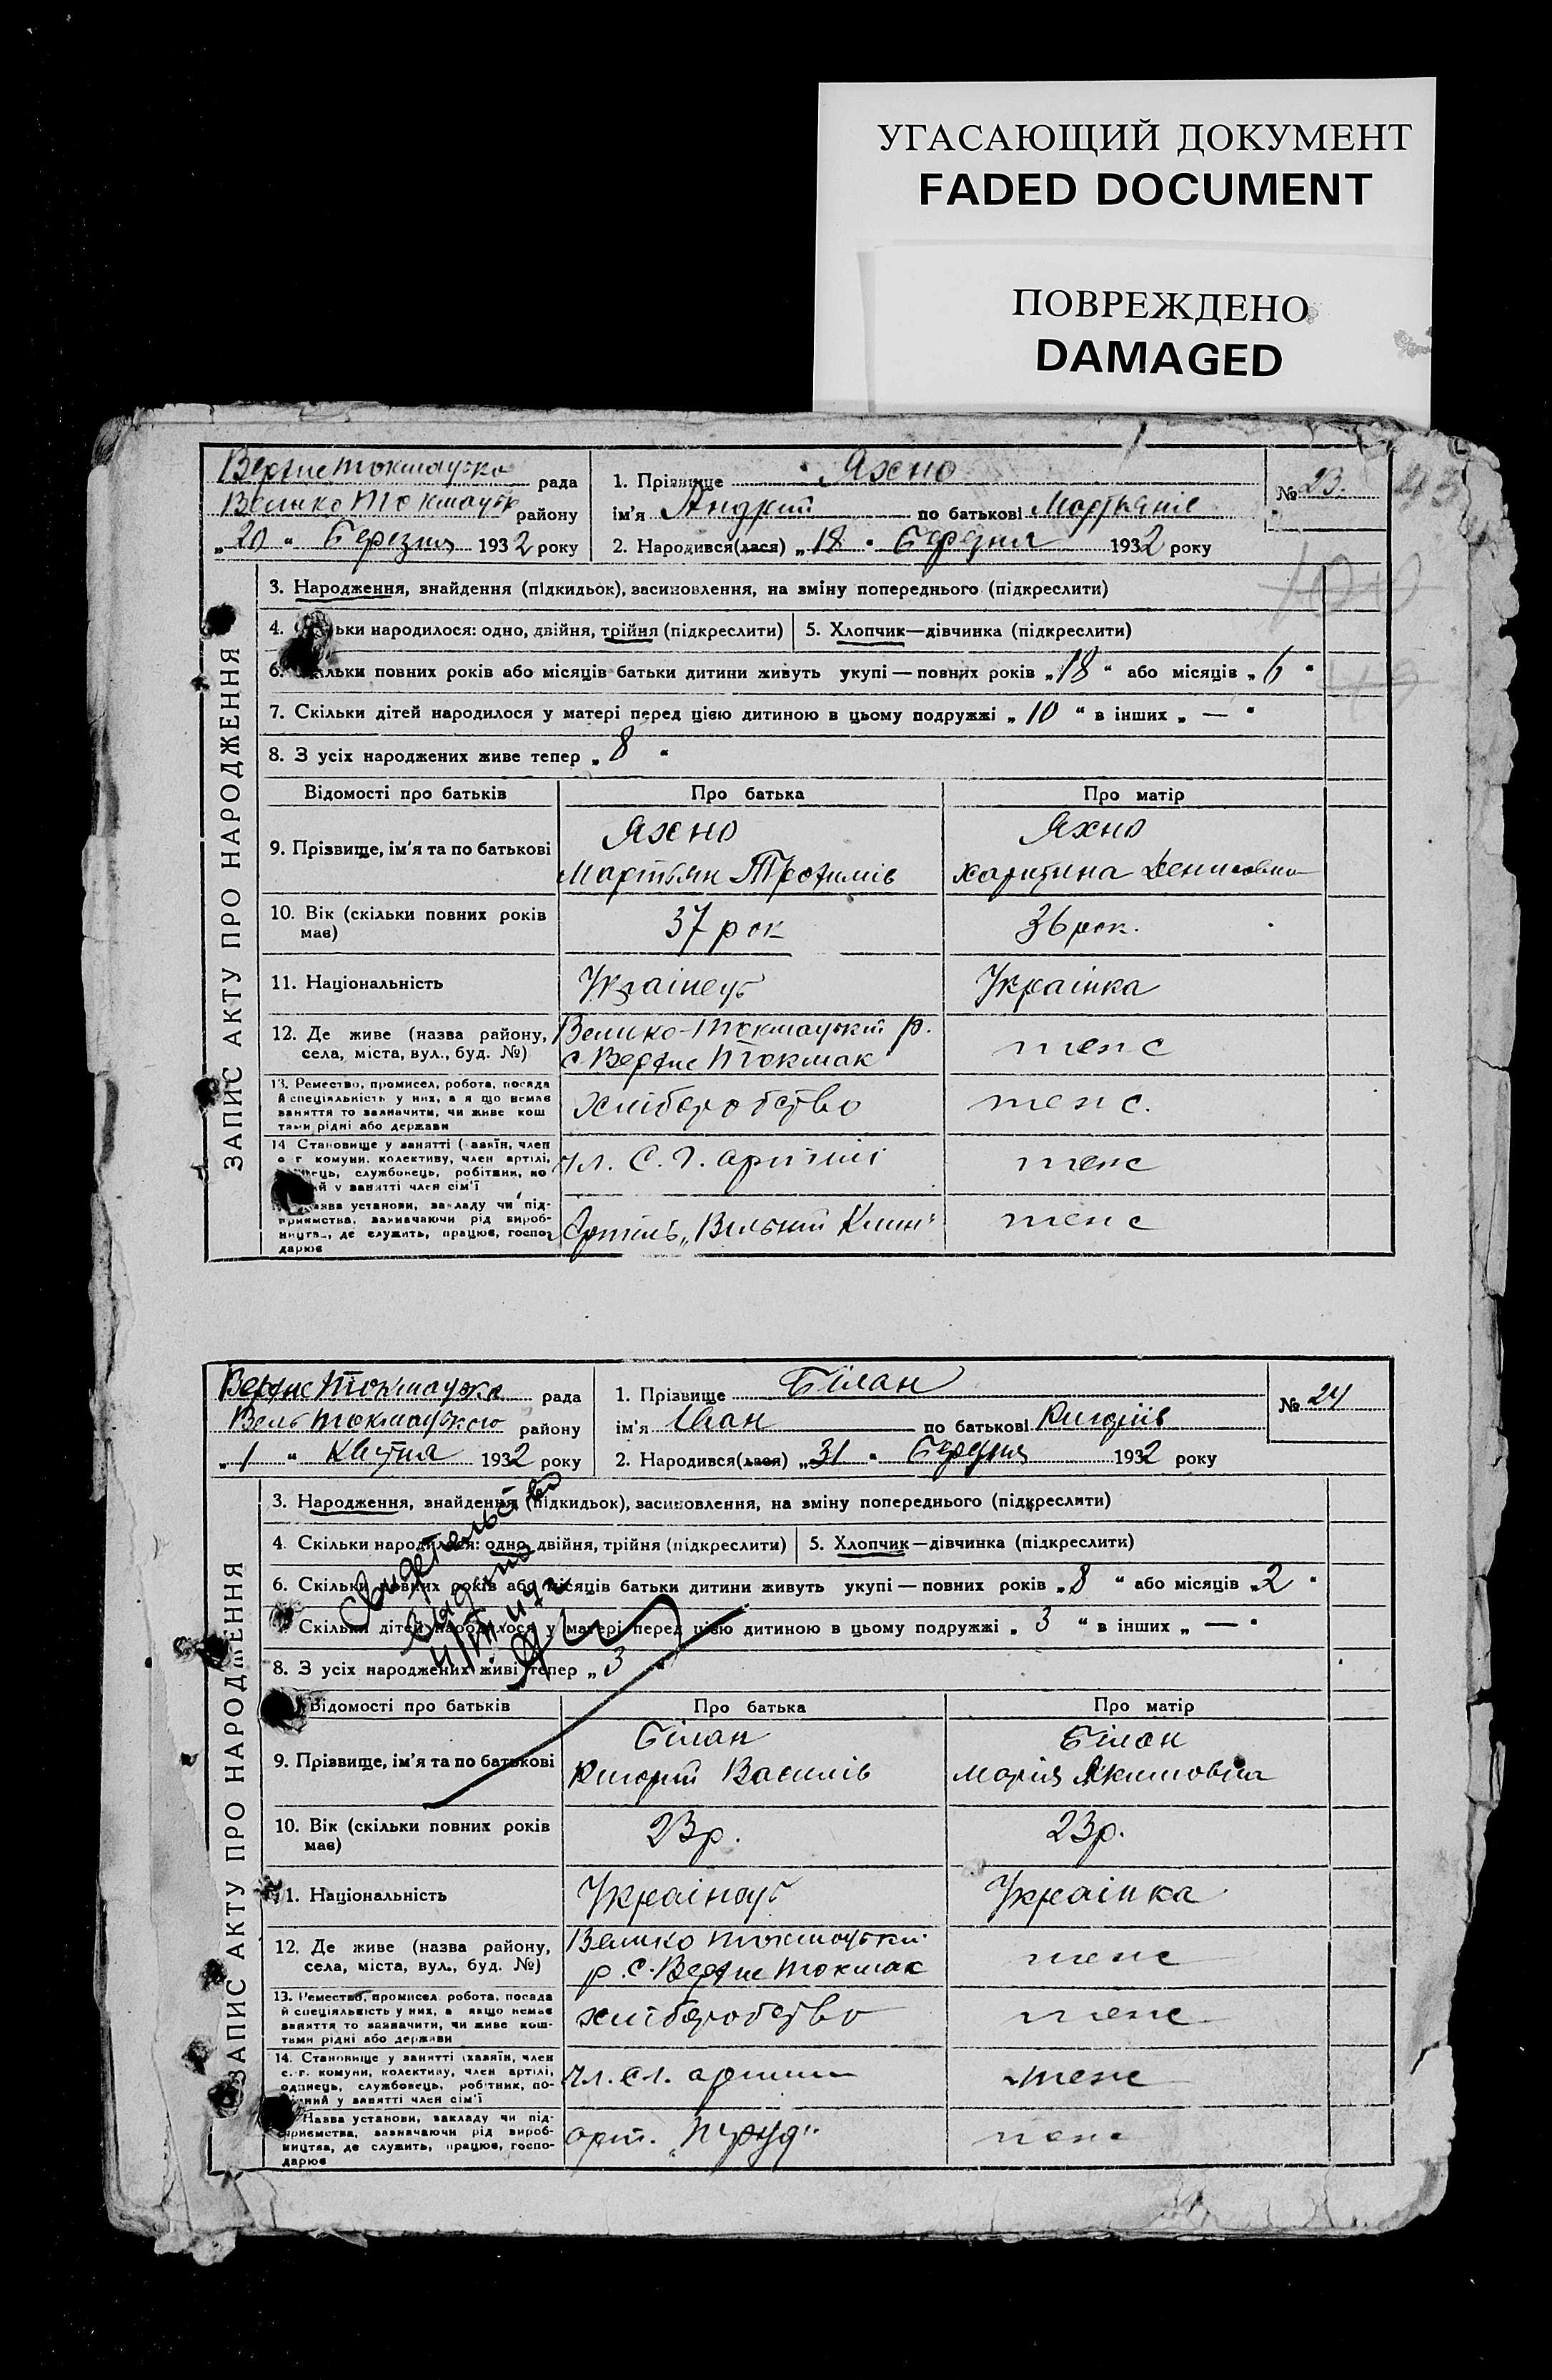 УГАСАЮЩИЙ ДОКУМЕНТ
FADED DOCUMENT
ПОВРЕЖДЕНО
DAMAGED
ЗАПИС АКТУ ПРО НАРОДЖЕННЯ
Верхнетокмацька рада
Велико Токмацьк району
„20“ Березня 1932 року
1. Прізвище Яхно
ім'я Андрій по батькові Мартьянів
№ 23.
2. Народився(лася) „18“ Березня 1932 року
3. Народження, знайдення (підкидьок), засиновлення, на зміну попереднього (підкреслити)
4. ьки народилося: одно, двійня, трійня (підкреслити) 5. Хлопчик—дівчинка (підкреслити)
6. Скільки повних років або місяців батьки дитини живуть укупі — повних років „18“ або місяців „6“
7. Скільки дітей народилося у матері перед цією дитиною в цьому подружжі „10“ в інших „—“
8. З усіх народжених живе тепер „8“
Відомості про батьків Про батька Про матір
9. Прізвище, ім'я та по батькові
Яхно
Мартьян Трохимів
Яхно
Харитина Денисовна
10. Вік (скільки повних років має)
37 рок
36 рок.
11. Національність
Українець
Українка
12. Де живе (назва району,
села, міста, вул., буд. №)
Велико-Токмацький р.
с Верхне Токмак
теж с
13. Ремество, промисел, робота, посада
й спеціяльність у них, а я що немає
заняття то зазначити, чи живе кош
тами рідні або держави
Хліборобство
теж с.
14 Становище у занятті ( азяїн, член
с г комуни, колективу, член артілі,
нець, службовець, робітник, по
ий у занятті член сім'ї
чл. С. Г. артілі
теж с
азва установи, закладу чи під-
приємства, зазначаючи рід вироб-
ництва, де служить, працює, госпо-
дарює
Артіль „Вільний Клин“
теж с
ЗАПИС АКТУ ПРО НАРОДЖЕННЯ
Верхне Токмацька рада
Вель Токмацького району
„1“ Квітня 1932 року
1. Прізвище Білан
ім'я Іван по батькові Григорів
№ 24
2. Народився(лася) „31“ Березня 1932 року
3. Народження, знайдення (підкидьок), засиновлення, на зміну попереднього (підкреслити)
4. Скільки народилося: одно, двійня, трійня (підкреслити) 5. Хлопчик—дівчинка (підкреслити)
6. Скільки повних років або місяців батьки дитини живуть укупі — повних років „8“ або місяців „2“
Скільки дітей народилося у матері перед цією дитиною в цьому подружжі „3“ в інших „—“
8. З усіх народжених живі тепер „3“
Свидетельство
выдано
Відомості про батьків Про батька Про матір
9. Прізвище, ім'я та по батькові
Білан
Григорій Василів
Білан
Марія Якимовна
10. Вік (скільки повних років має)
23р.
23р.
11. Національність
Українець
Українка
12. Де живе (назва району,
села, міста, вул., буд. №)
Велико Токмацький
р. с. Верхне Токмак
теж с
13. Ремество, промисел робота, посада
й спеціяльність у них, а якщо немає
заняття то зазначити, чи живе кош-
тами рідні або держави
хліборобство
теж с
14. Становище у занятті (хазяїн, член
с.-г. комуни, колективу, член артілі,
одинець, службовець, робітник, по-
ний у занятті член сім'ї
чл. с.г. артили
теж с
Назва установи, закладу чи під-
приємства, зазначаючи рід вироб-
ництва, де служить, працює, госпо-
дарює
арт. „Труд“
теж с